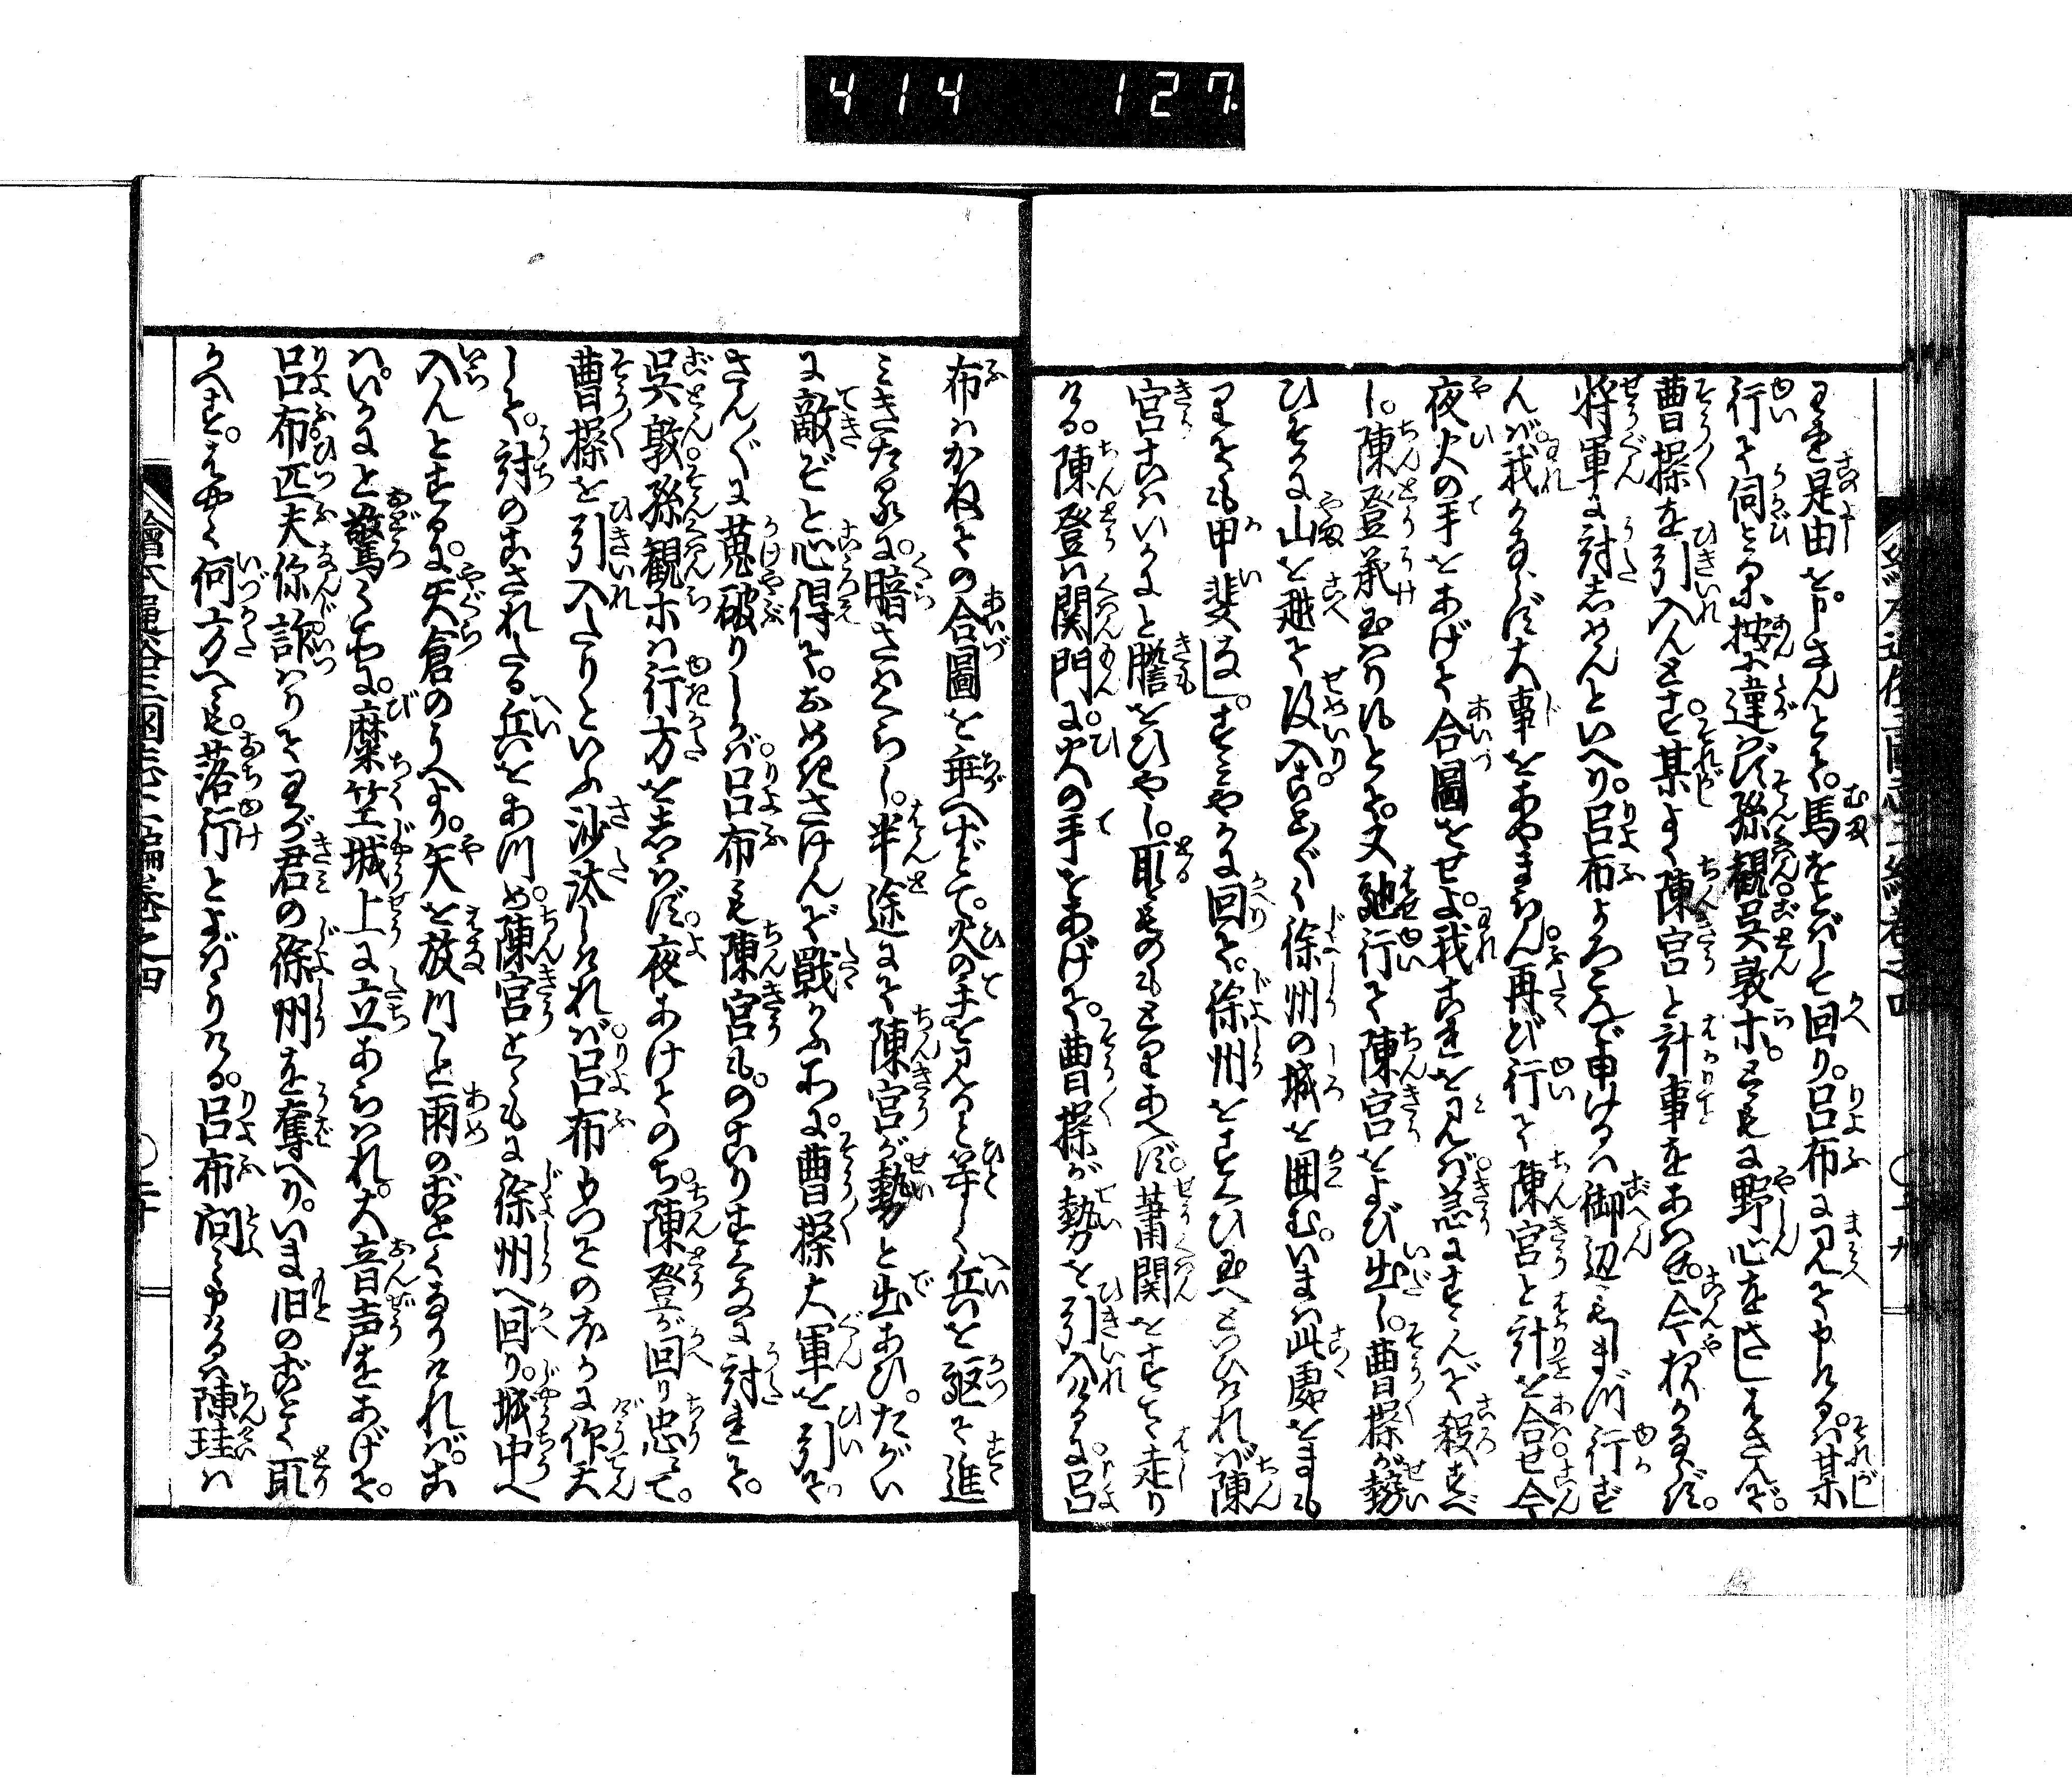 414 127
りを是由を申さんとて。馬をとばして回り。呂布にまみえて申けるは。某
行て伺とみるに按に違はず孫観呉敦ホ。ともに野心をさしはさんで。
曹操を引入んとす。某よく陳宮と計事をあはせ。今夜かならず。
将軍に討しめんといへり。呂布よろこんで申けるは御辺もまづ行ず
んば。我かならず大事をあやまらん。再び行て陳宮と計を合せ今
夜火の手をあげて合圖をせよ。我これを見ば急にすゝんで殺すべ
し。陳登承玉はりぬとて。又馳行て陳宮をよび出し。曹操が勢
ひそかに山を越て攻入。ことごとく徐州の城を囲む。いまは此處をまも
りても甲斐なし。すみやかに回て。徐州をすくひ玉へといひければ陳
宮こはいかにと膽をひやし。取ものもとりあへず。蕭関をすてゝ走り
ける。陳登は関門に火の手をあげて。曹操が勢を引入けるに。呂
布はかねての合圖を無へずとて。火の手を見ると等しく兵を駆て進
みきたるに。暗さはくらし。半途にて陳宮が勢と出あひ。たがい
に敵ぞと心得て。おめきさけんで戦かふ所に。曹操大軍を引て
さんぐに蒐破りしかば。呂布も陳宮も。のこりすくなに討れて。
呉敦孫観ホは行方をしらず。夜あけてのち。陳登が回り忠にて。
曹操を引入たりといふ沙汰しければ。呂布もつての外に仰天
して。討のこされたる兵をあつめ。陳宮とともに徐州へ回り。城中へ
入んとするに。矢倉のうへより。矢を放つこと雨のごとくなりければ。こ
はいかにと驚く所に。糜竺城上に立あらはれ。大音声をあげて。
呂布匹夫你詐はりてわが君の徐州を奪へり。いま旧のごとく取
かへす。はやく何方へも。落行とよばゝりける。呂布問て申けるは陳珪は
繪本通俗三國志二編巻之四